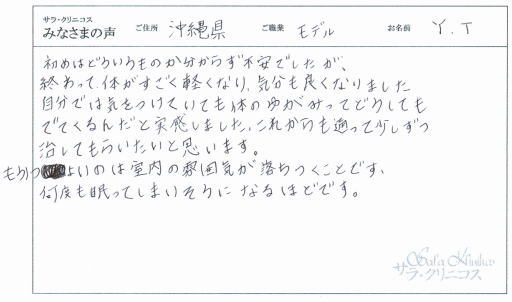 サラ・クリニコス
みなさまの声 ご住所 沖縄県 ご職業 モデル お名前 Y.T
初めはどういうものか分からず不安でしたが、
終わって、体がすごく軽くなり、気分も良くなりました
自分では気をつけていても体のゆがみってどうしても
でてくるんだと実感しました。これからも通って少しずつ
治してもらいたいと思います。
もう1つ よいのは室内の雰囲気が落ちつくことです、
何度も眠ってしまいそうになるほどです。
Sara Klinikos
サラ・クリニコス